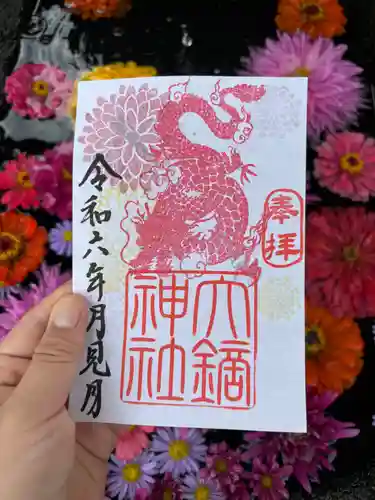 奉拝
大鏑
神社
令和六年月見月